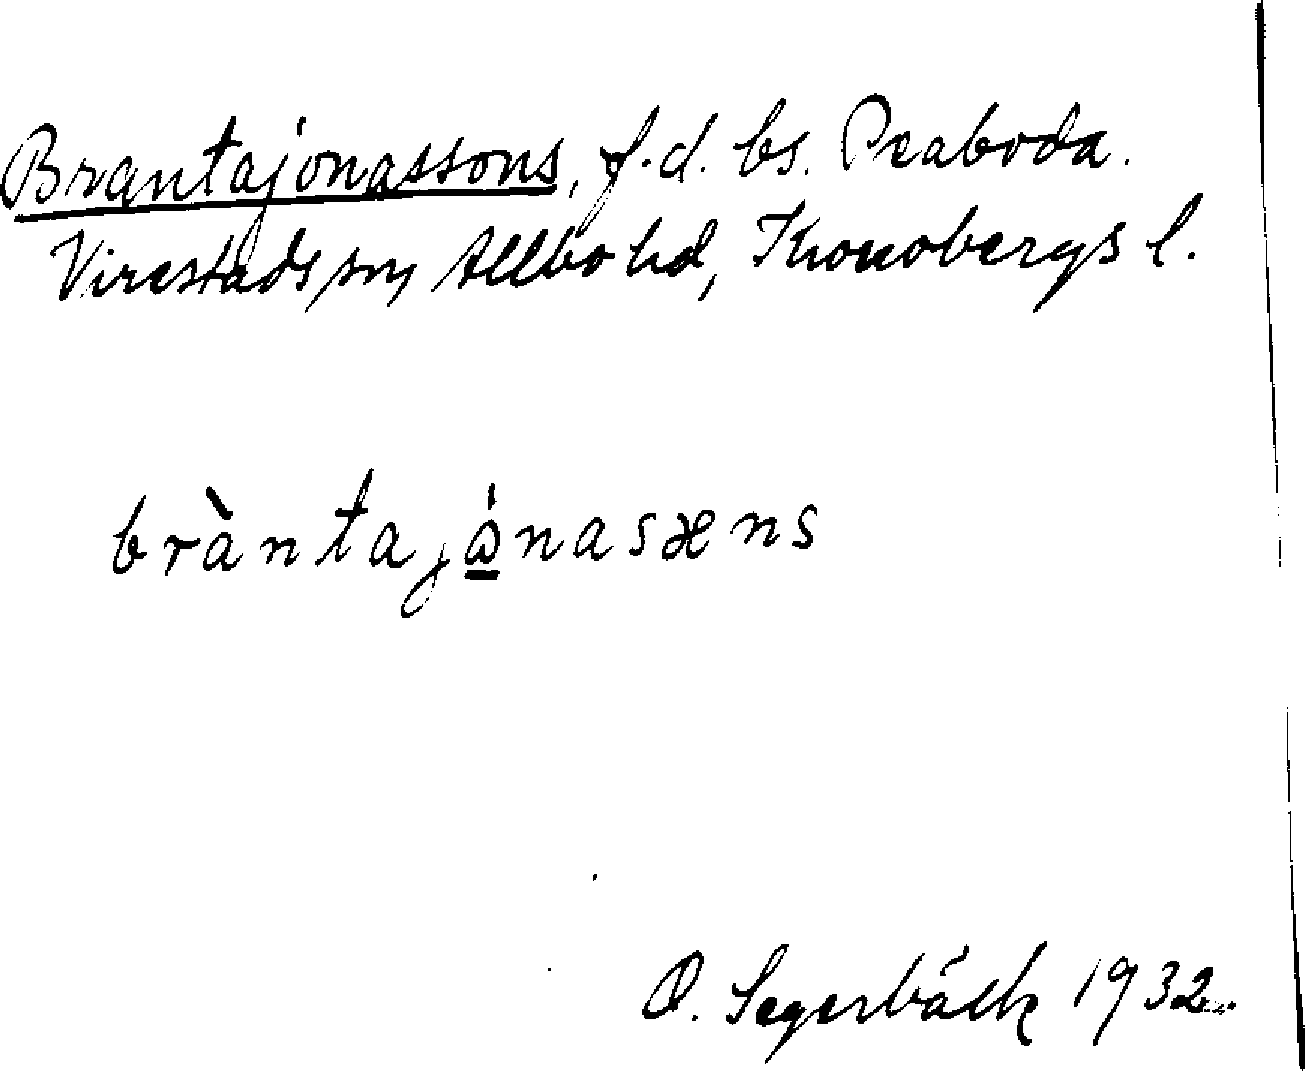 Brantajonassons, f.d. bs. Peaboda.
Virestads sn, Allbo hd, Kronobergs l.
bràntajo̲nasæns
O. Segerbäck 1932.